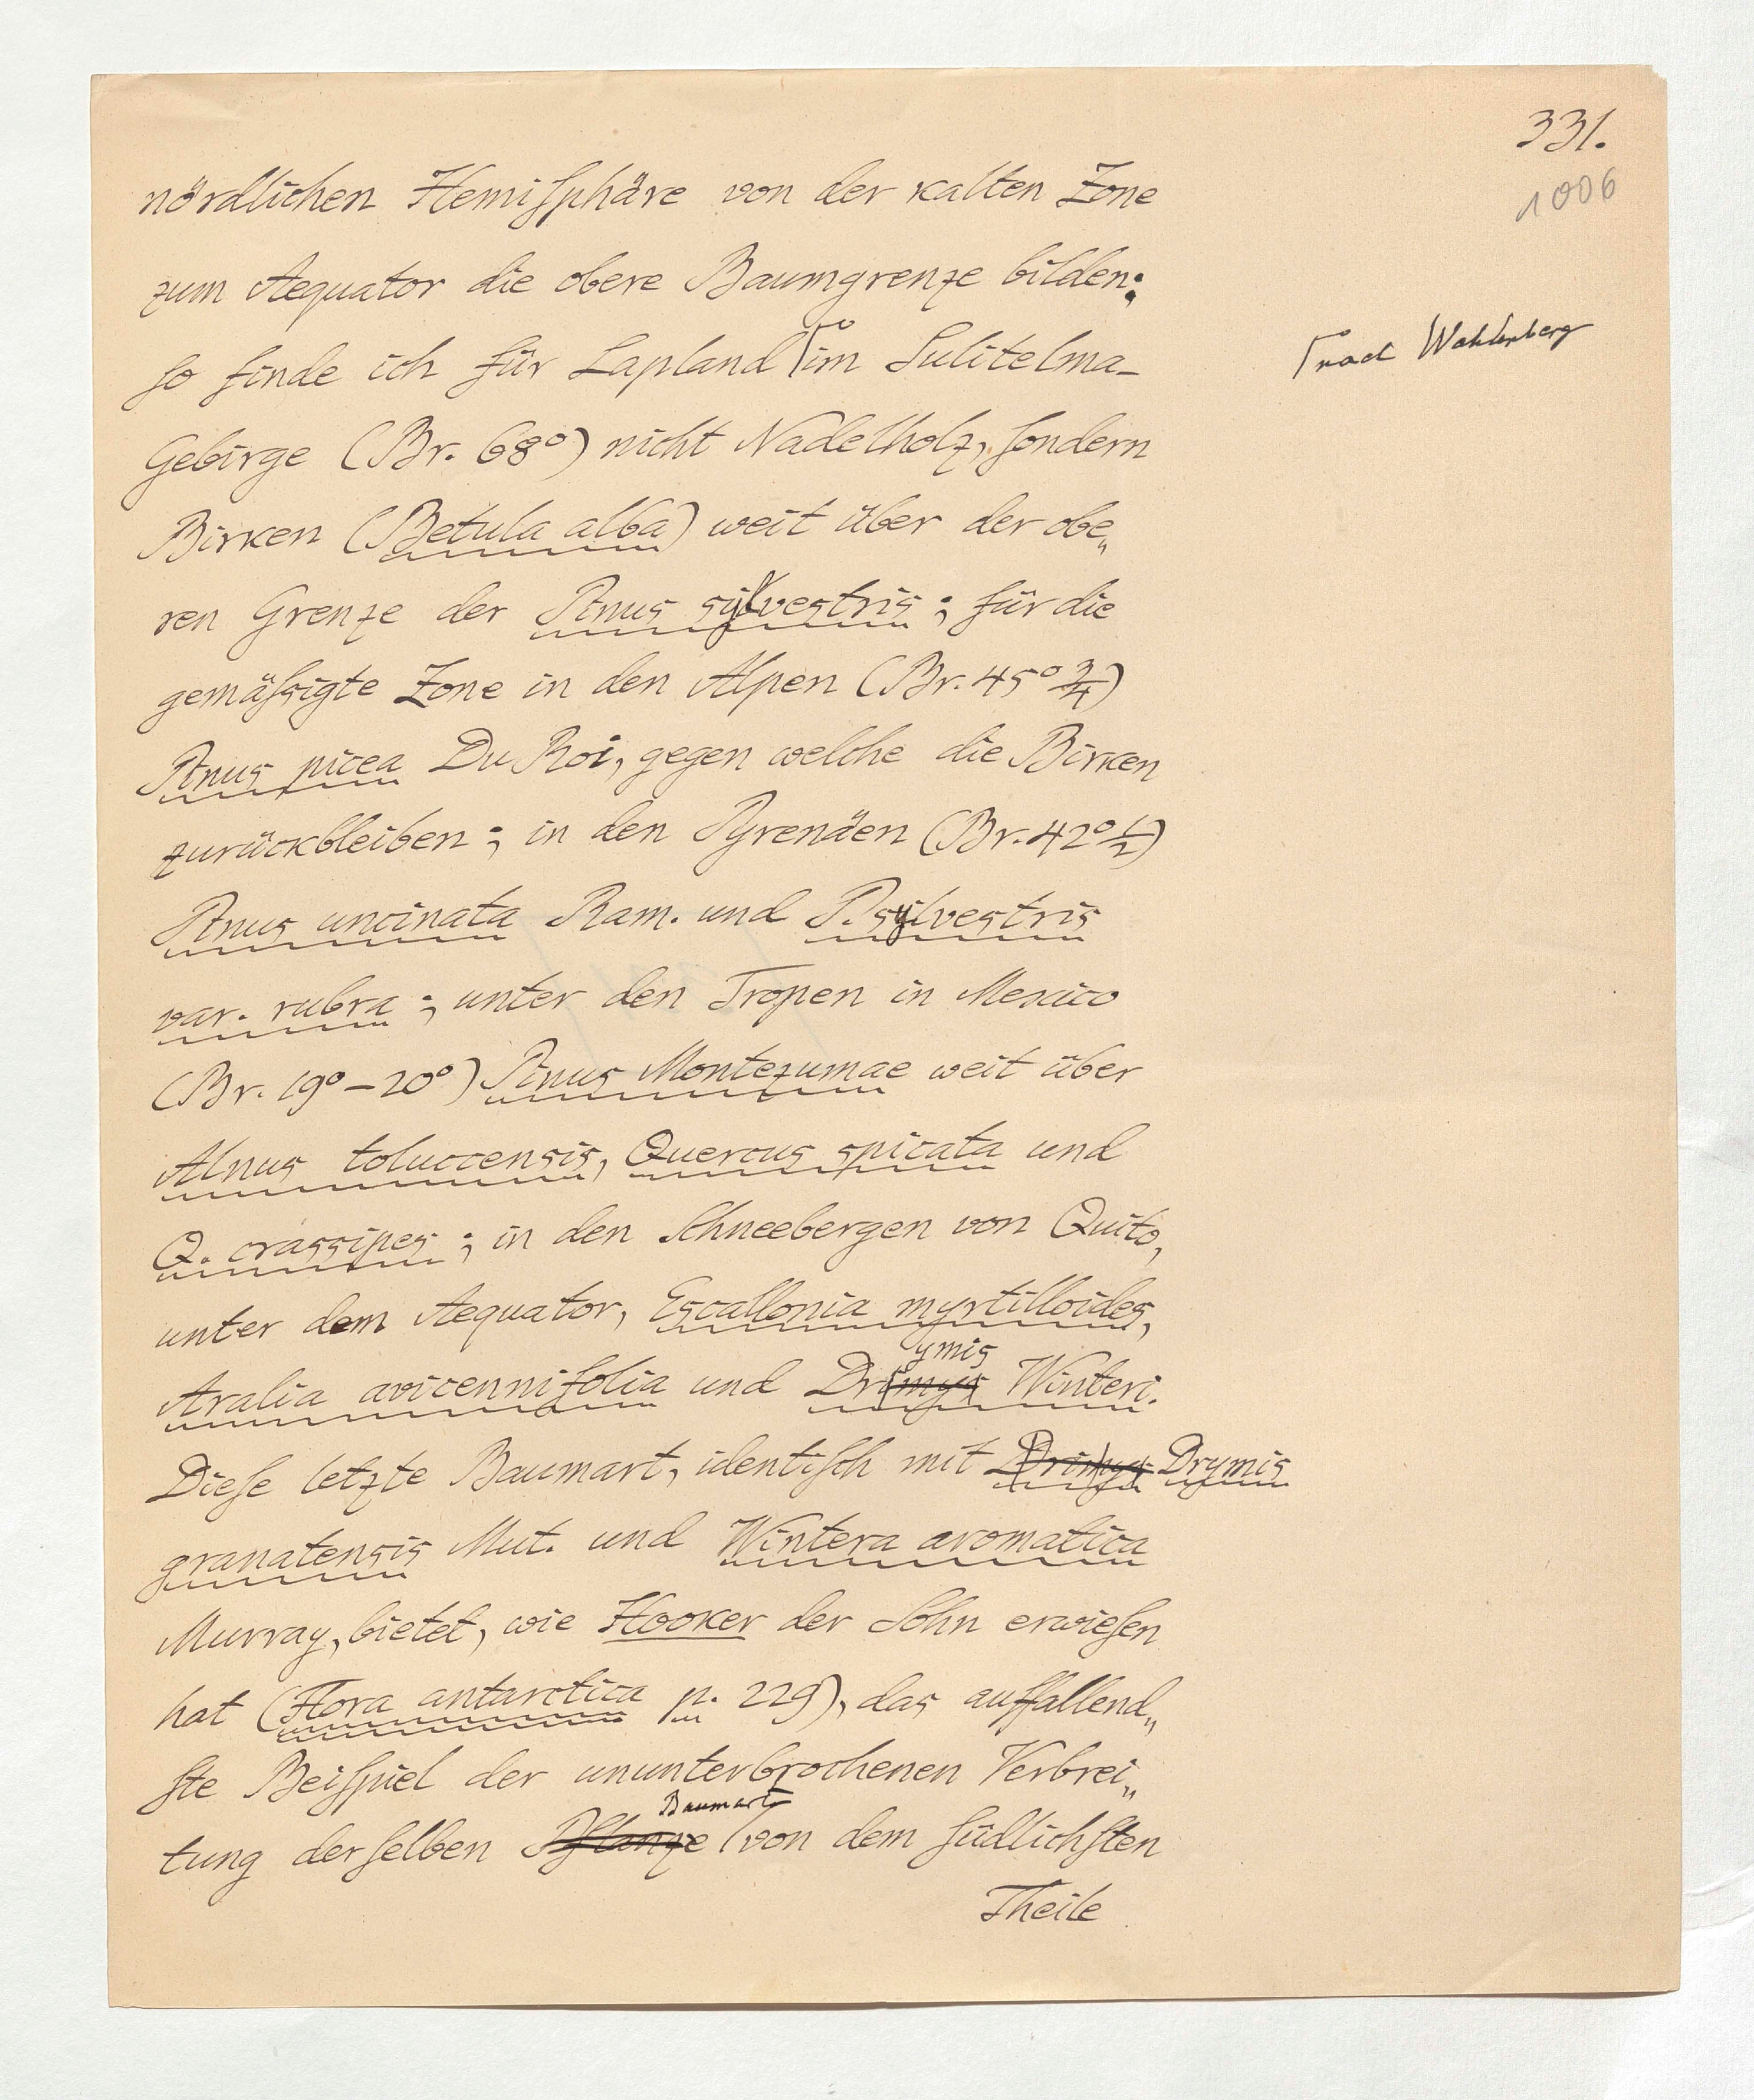 331.
1006
nördlichen Hemiſphäre von der kalten Zone
zum Aequator die obere Baumgrenze bilden:
ſo finde ich für Lapland ⌈im Sulitelma-
nach Wahlenberg
Gebirge (Br. 68°) nicht Nadelholz, ſondern
Birken (Betula alba) weit über der obe„
ren Grenze der Pinus sylvestris; für die
gemäſsigte Zone in den Alpen (Br. 45° 3/4)
Pinus picea Du Roi, gegen welche die Birken
zurückbleiben; in den Pyrenäen (Br. 42° 1/2)
Pinus uncinata Ram. und P. sylvestris
var. rubra; unter den Tropen in Mexico
(Br. 19°–20°) Pinus Montezumae weit über
Alnus toluccensis, Quercus spicata und
Q. crassipes; in den Schneebergen von Quito,
unter dem Aequator, Escallonia myrtilloides,
ymis
Aralia avicennifolia und Drimys Winteri.
Dieſe letzte Baumart, identiſch mit Drimys Drymis
granatensis Mut. und Wintera aromatica
Murray, bietet, wie Hooker der Sohn erwieſen
hat (Flora antarctica p. 229), das auffallend„
ſte Beiſpiel der ununterbrochenen Verbrei„
Baumart
tung derſelben Pflanze von dem ſüdlichſten
Theile